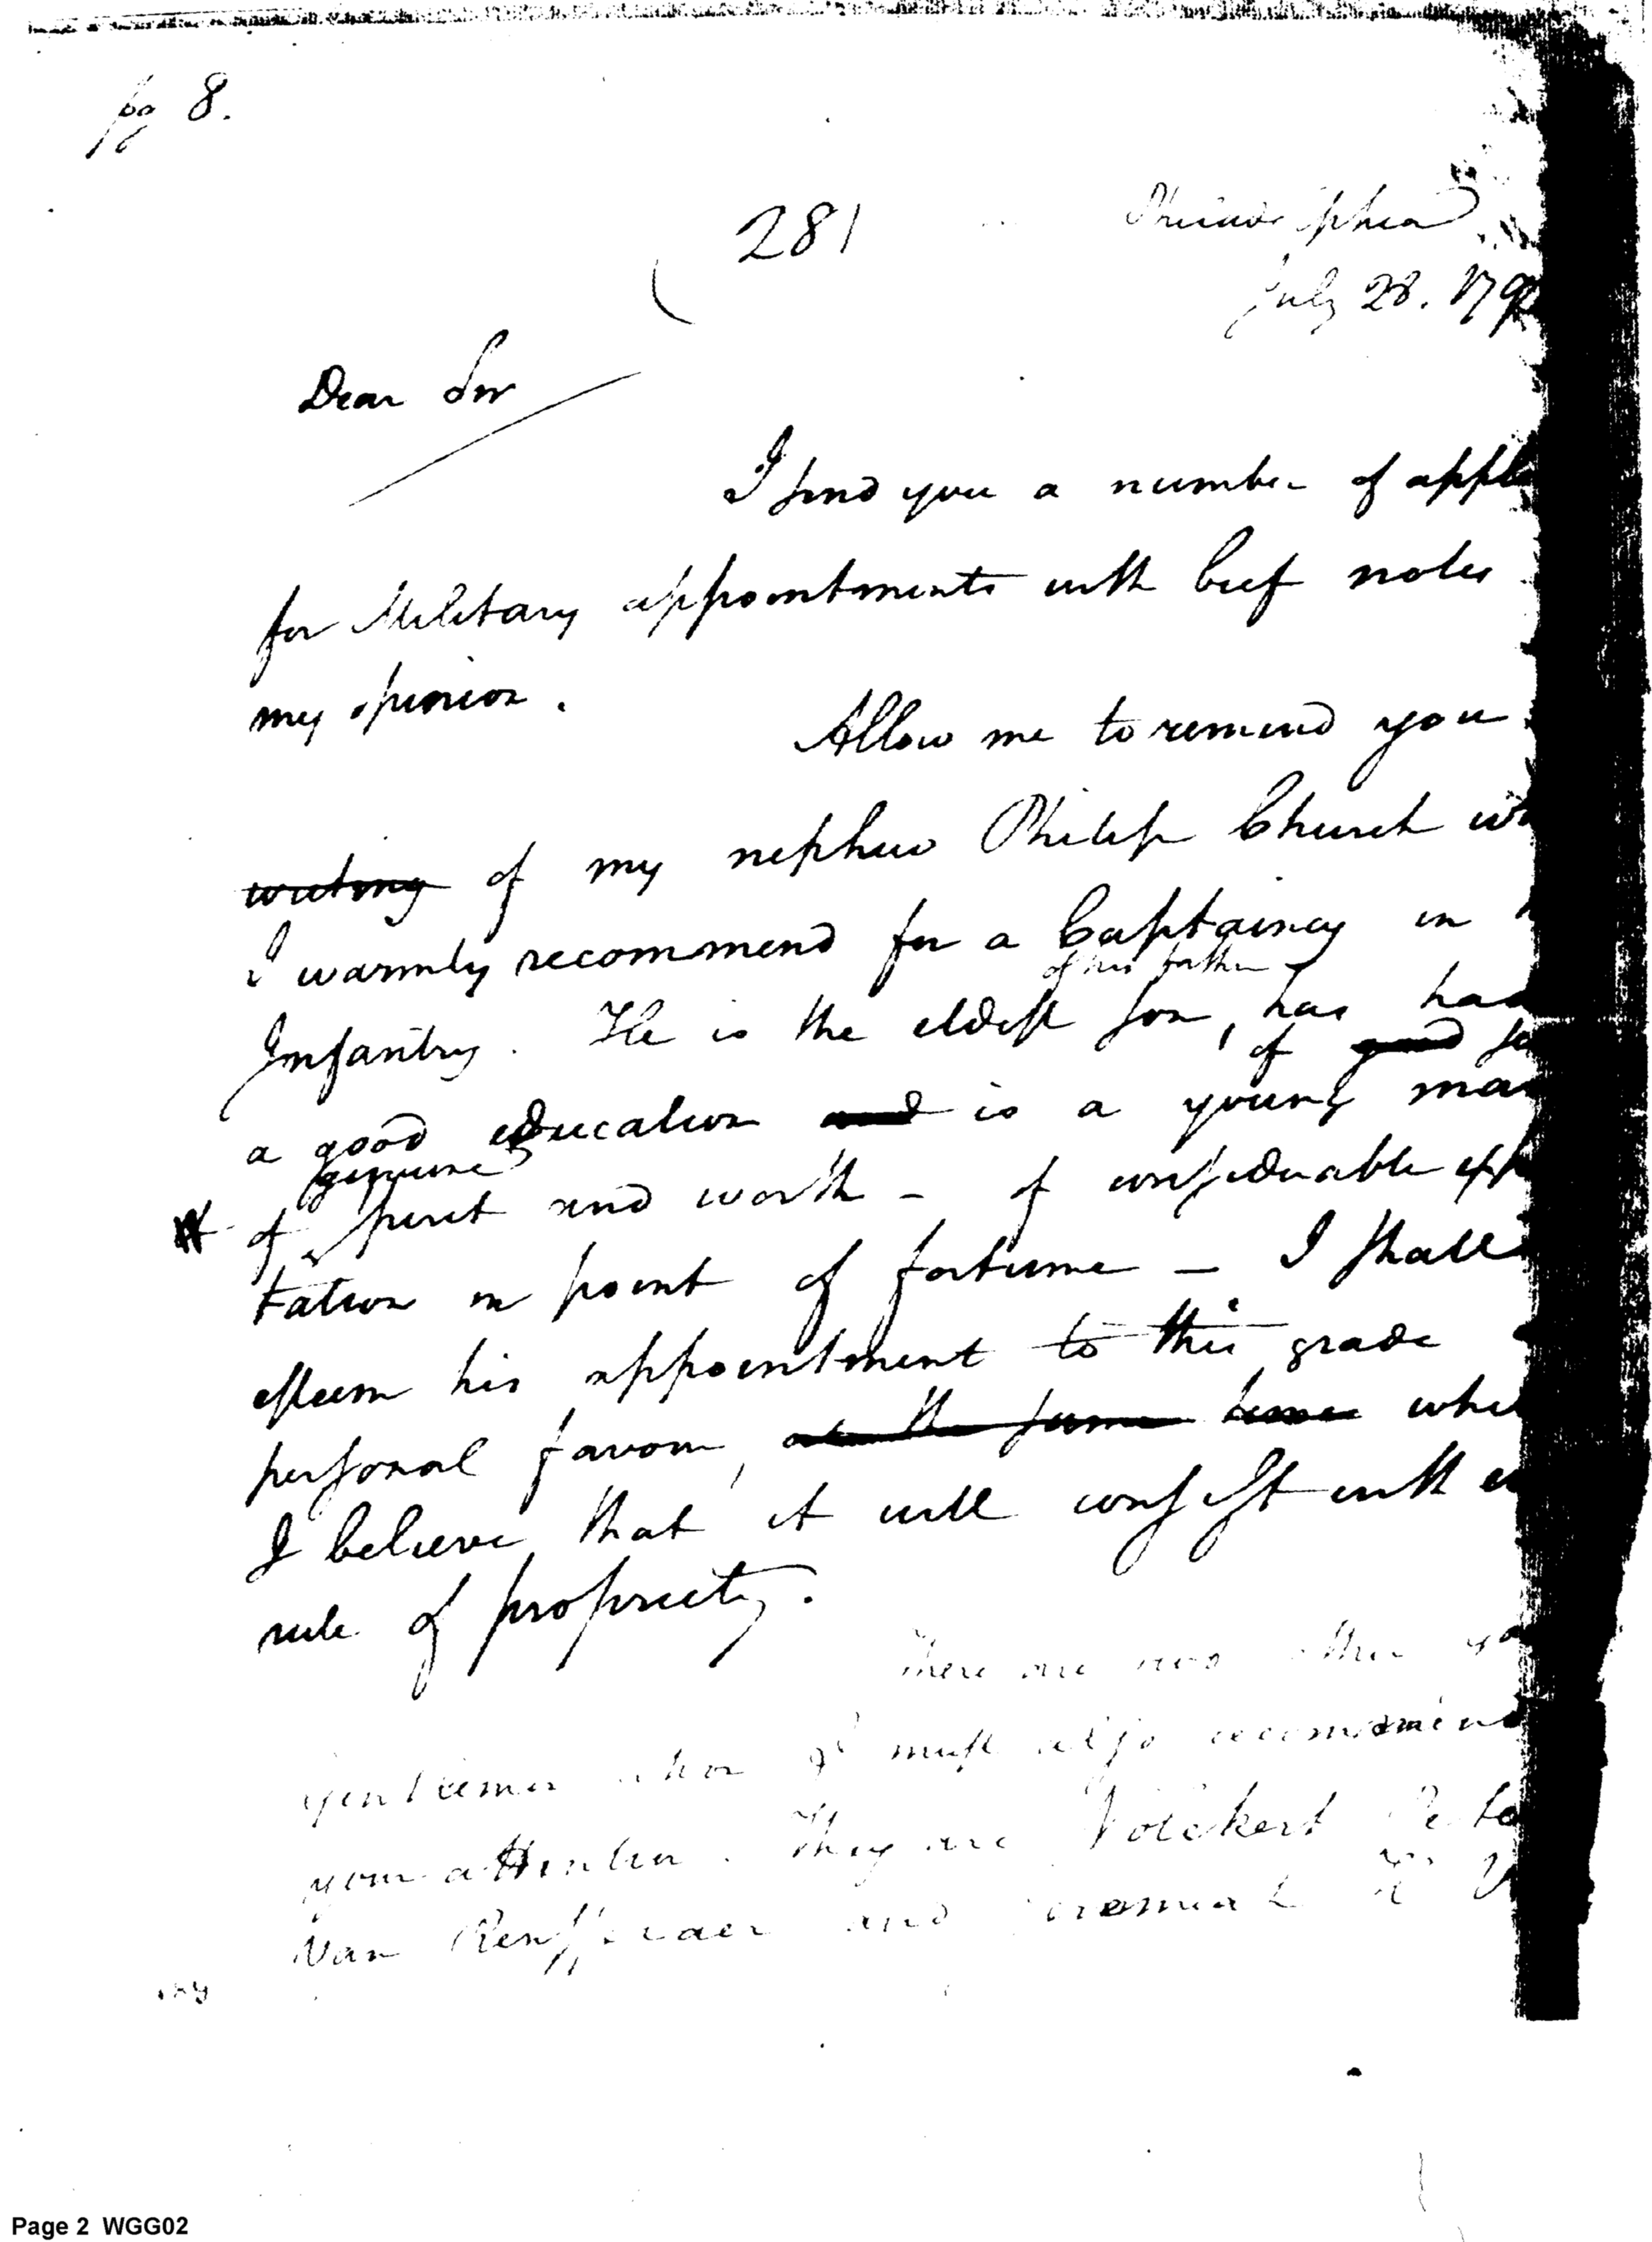 pg 8.
281
Philadelphia
July 28. 179
Dear Sir
I send you a number of appl
for Military appointments with brief notes
my opinion.
Allow me to remind you
writing of my nephew Philip Church wh
I warmly recommend for a Captaincy in
of his father
Infantry. He is the eldest son, has had
of good se
a good education and is a young man
genuine
of spirit and worth - of considerable exp
tation in point of fortune - I shall
esteem his appointment to this grade
personal favour, at the same time whi
I believe that it will consist with e
rule of propriety.
There are two other
gentlemen whom I must also recommend
your attention. They are Volckert Pe
Van Rensselaer and Jeremiah V
Page 2 WGG02